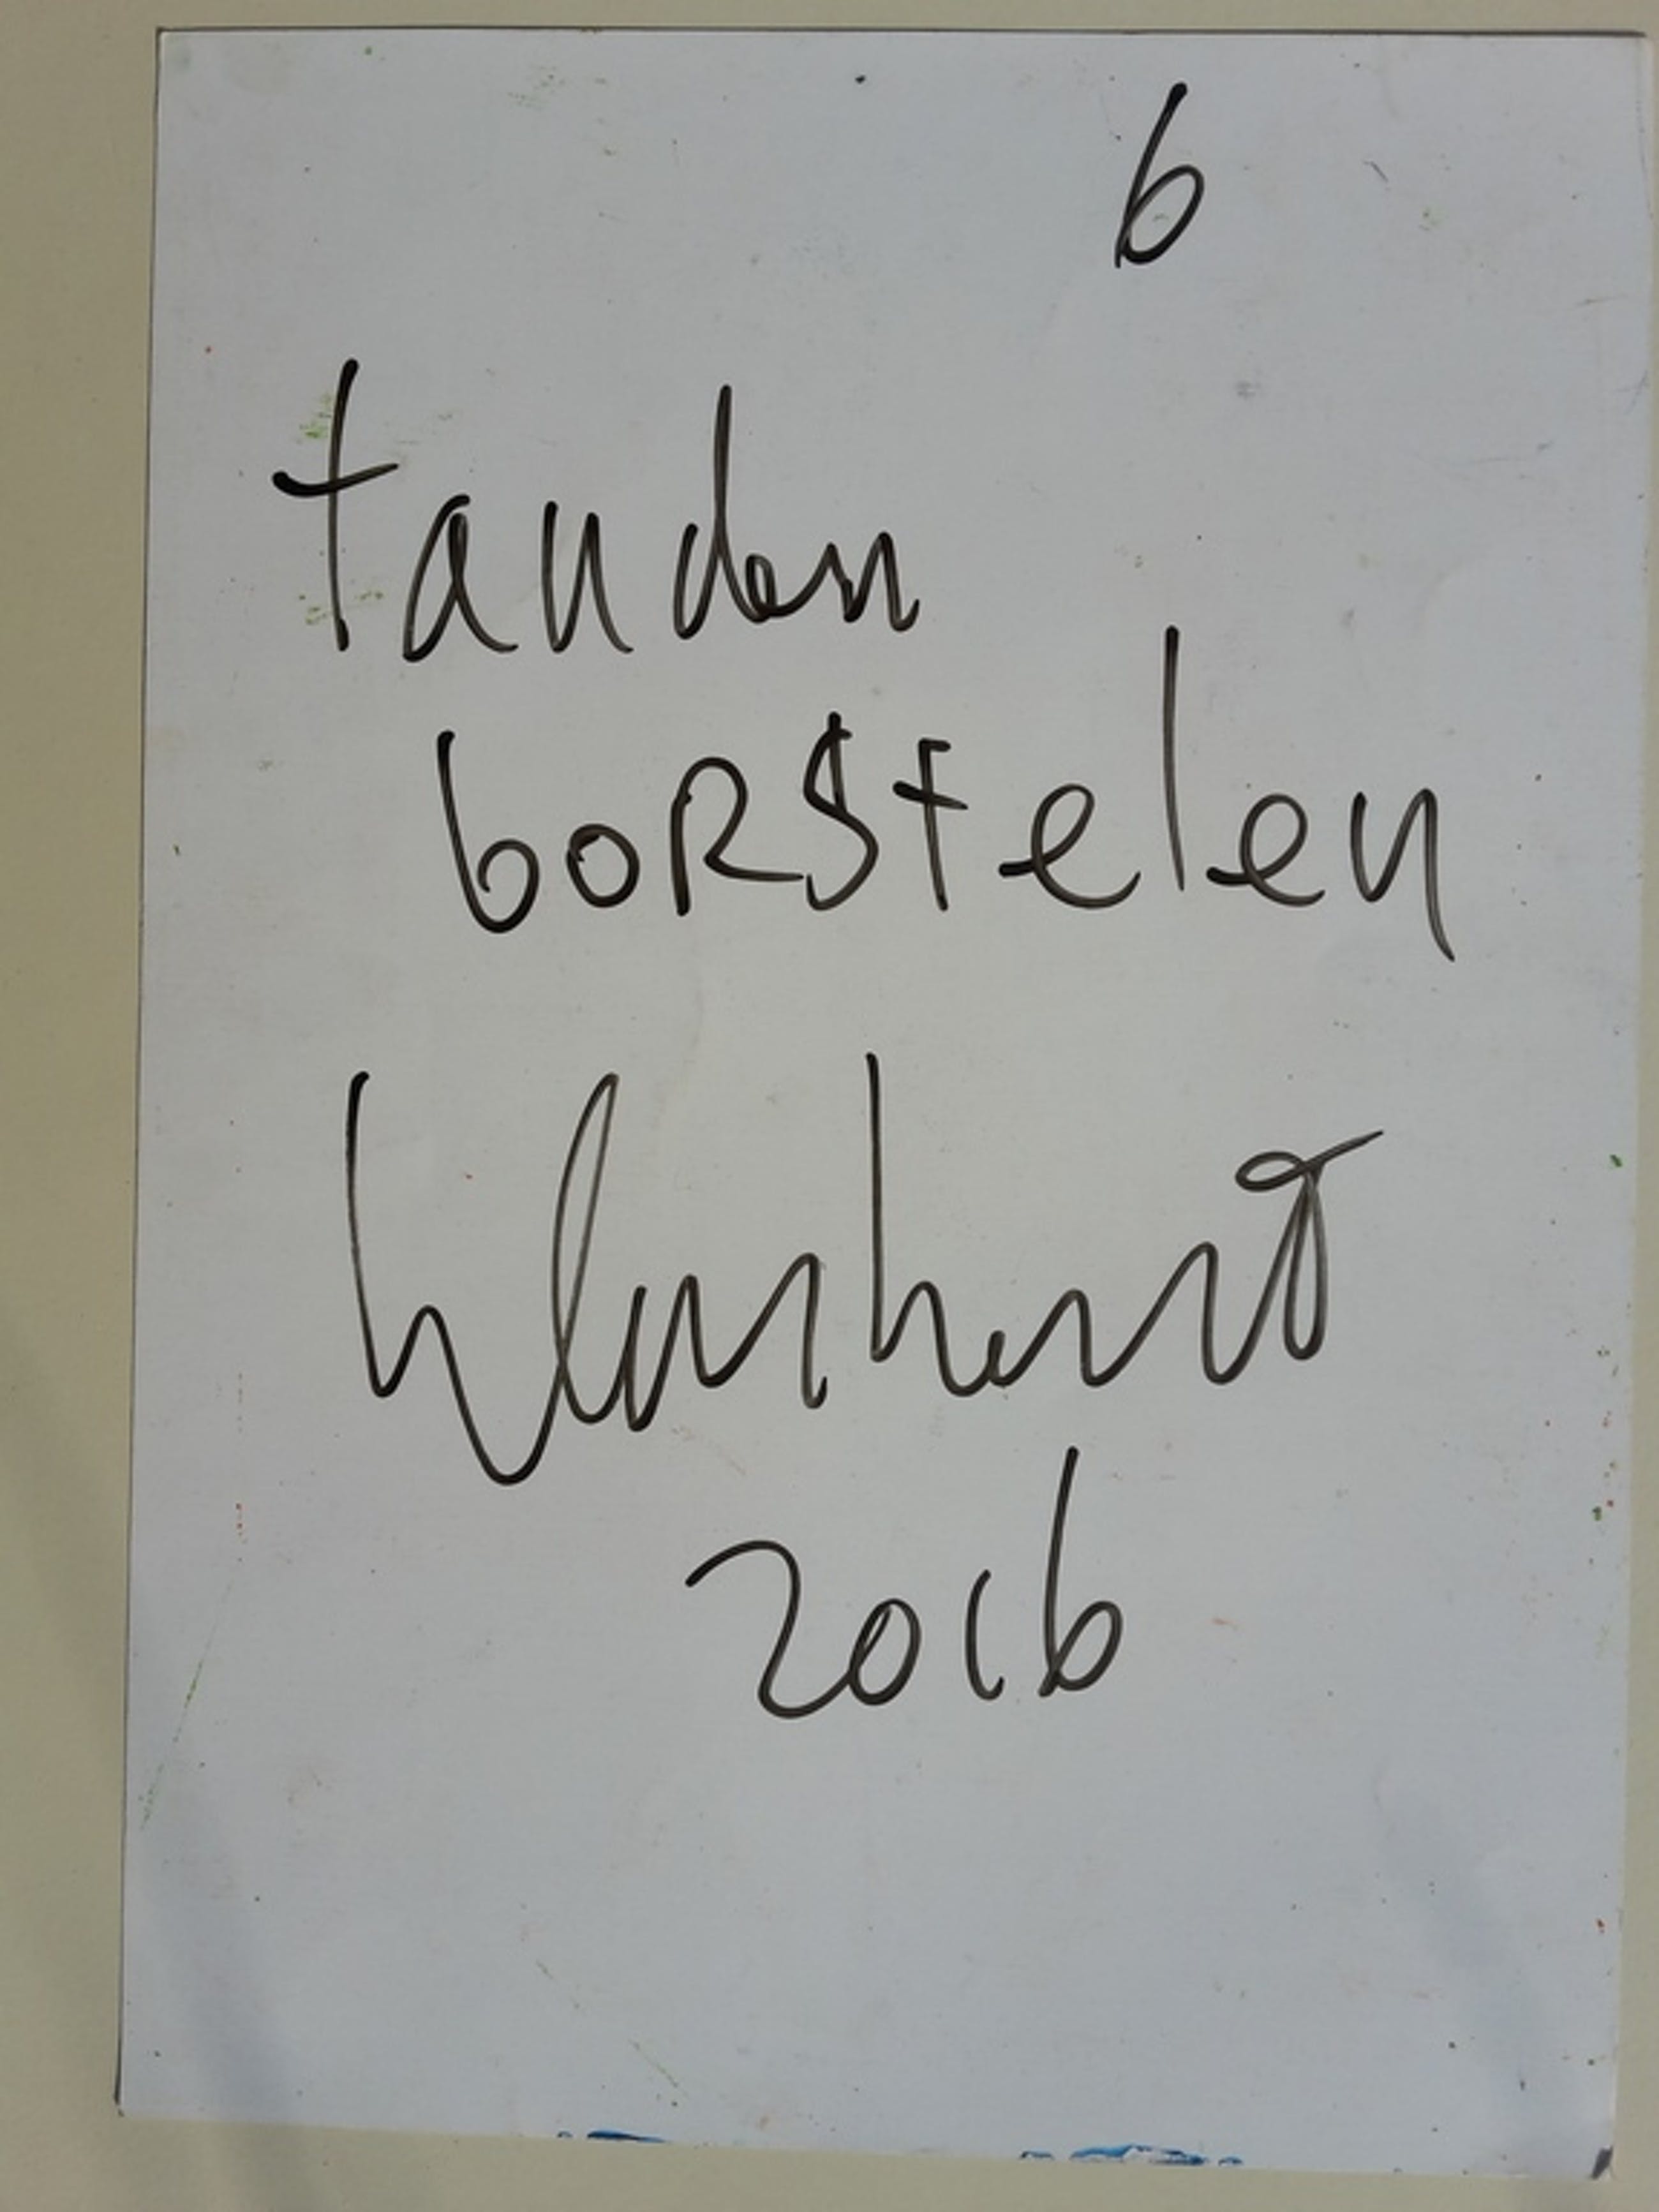 6
tanden
borstelen
2016